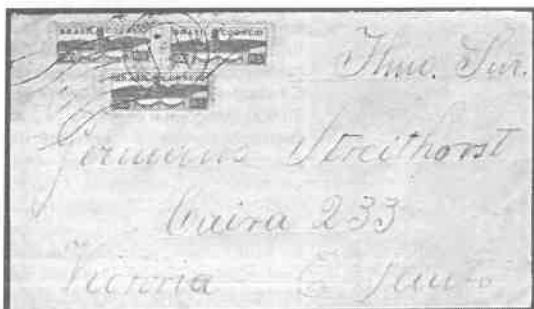 BRASIL CORREIO BRASIL CORREIO
BRASIL CORREIO
Illmo. Snr.
Germanus Streithorst
Caixa 233
Victoria E. Santo